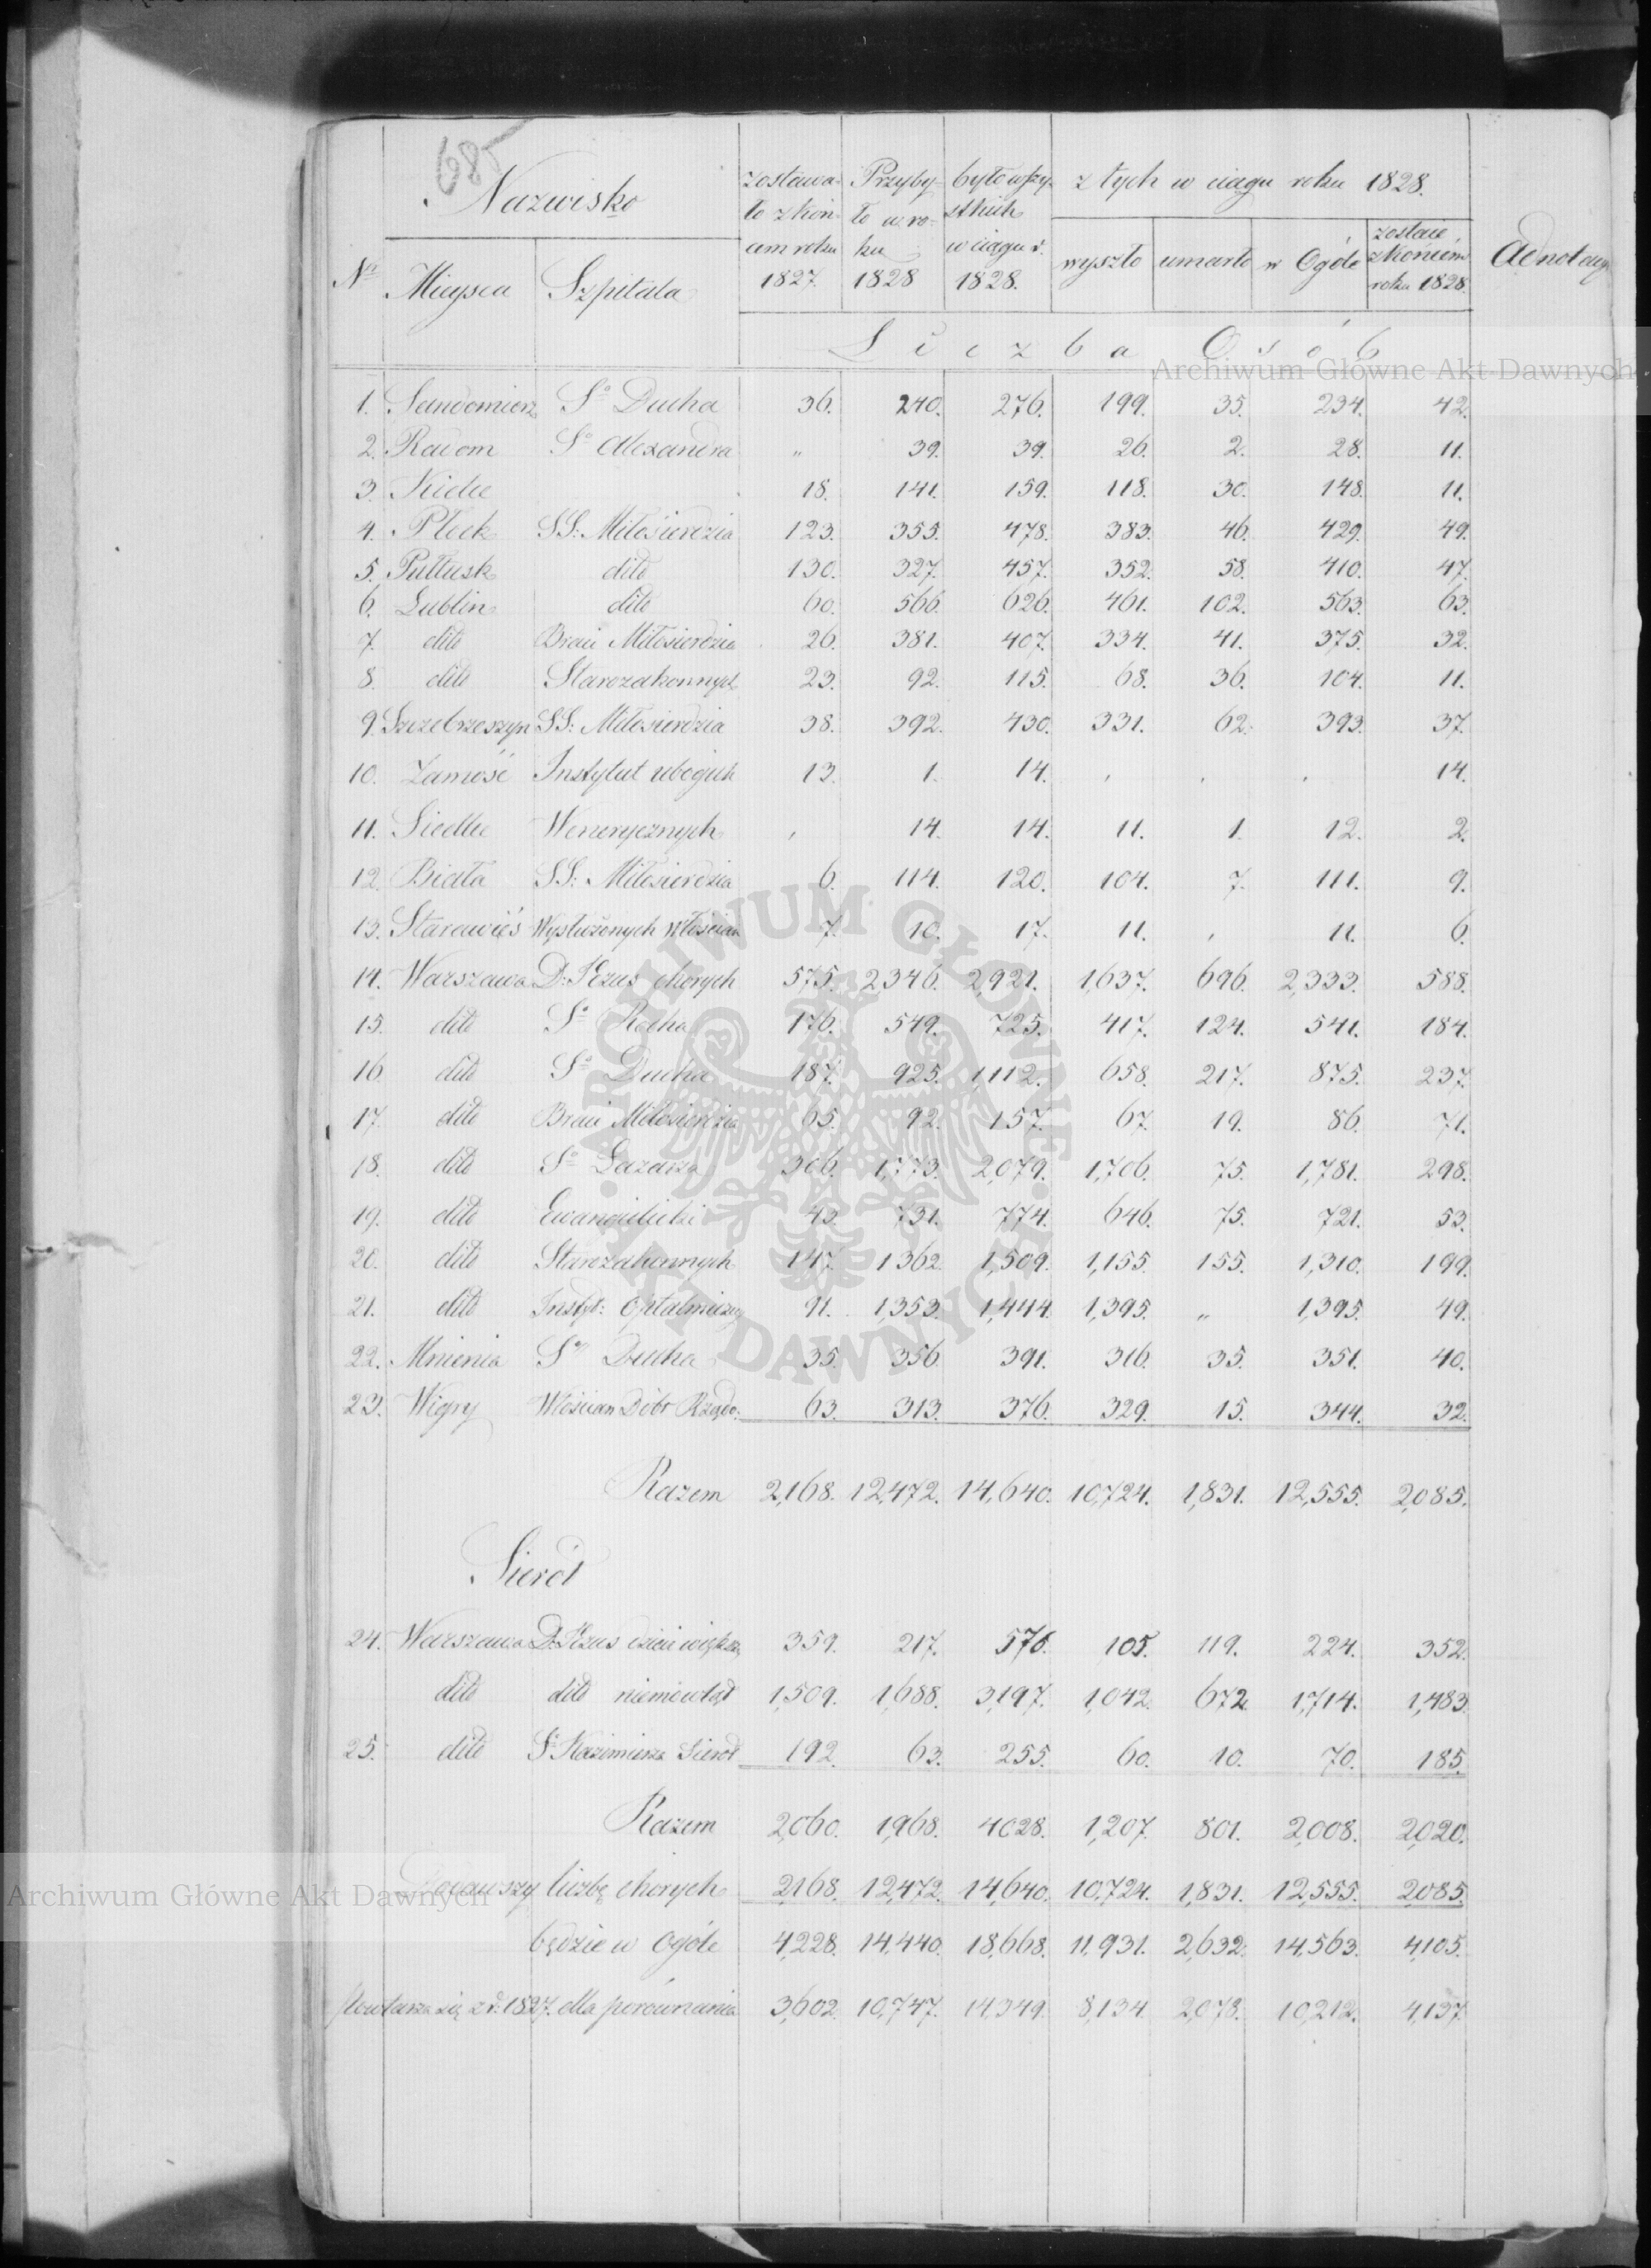 685
Nazwisko zostawa- Przyby- było wszy- z tych w ciągu roku 1828.
ło z koń- ło w ro- stkich
cem roku ku w ciągu r. wyszło umarło w Ogóle zostaie z końcem roku 1828. Adnotacye
Nr Mieysca Szpitala 1827. 1828 1828.
Liczba Osób
1. Sandomierz So Ducha 36. 240. 276. 199. 35. 234. 42.
2. Radom So Alexandra " 39. 39. 26. 2. 28. 11.
3. Kielce 18. 141. 159. 118. 30. 148. 11.
4. Płock SS: Miłosierdzia 123. 355. 478. 383. 46. 429. 49.
5. Pułtusk dito 130. 327. 457. 352. 58. 410. 47.
6. Lublin dito 60. 566. 626. 461. 102. 563. 63.
7. dito Braci Miłosierdzia 26. 381. 407. 334. 41. 375. 32.
8. dito Starozakonnych 23. 92. 115. 68. 36. 104. 11.
9. Szczebrzeszyn SS: Miłosierdzia 38. 392. 430. 331. 62. 393. 37.
10. Zamość Instytut ubogich 13. 1. 14. , , , 14.
11. Siedlce Wenerycznych , 14. 14. 11. 1. 12. 2.
12. Biała SS: Miłosierdzia 6. 114. 120. 104. 7. 111. 9.
13. Starawieś Wysłużonych Włościan 7. 10. 17. 11. , 11. 6.
14. Warszawa D: Jezus chorych 575. 2,346. 2,921. 1,637. 696. 2,333. 588.
15. dito So Rocha 176. 549. 725. 417. 124. 541. 184.
16. dito So Ducha 187. 925. 1,112. 658. 217. 875. 237.
17. dito Braci Miłosierdzia 65. 92. 157. 67. 19. 86. 71.
18. dito So Łazarza 306. 1,773. 2,079. 1,706. 75. 1,781. 298.
19. dito Ewangielicki 43. 731. 774. 646. 75. 721. 53.
20. dito Starozakonnych 147. 1362. 1,509. 1,155. 155. 1,310. 199.
21. dito Instyt: Optalmiczny 91. 1,353. 1,444. 1,395. " 1,395. 49.
22. Mnienia So Ducha 35. 356. 391. 316. 35. 351. 40.
23. Wigry Włościan Dóbr Rządo: 63. 313. 376. 329. 15. 344. 32.
Razem 2,168. 12,472. 14,640. 10,724. 1,831. 12,555. 2,085.
Sierót
24. Warszawa D: Jezus dzieci większ 359. 217. 576. 105. 119. 224. 352.
dito dito niemowląt 1,509. 1,688. 3,197. 1,042. 672. 1,714. 1,483.
25. dito So Kazimierza Sierot 192. 63. 255. 60. 10. 70. 185.
Razem 2,060. 1,968. 4028. 1,207. 801. 2,008. 2,020.
Dodawszy liczbę chorych 2,168. 12,472. 14,640. 10,724. 1,831. 12,555. 2,085.
będzie w ogóle 4,228. 14,440. 18,668. 11,931. 2,632. 14,563. 4,105.
powtarza się z r. 1827. dla porównania 3,602. 10,747. 14,349. 8,134. 2,078. 10,212. 4,137.
Archiwum Główne Akt Dawnych
ARCHIWUM GŁÓWNE AKT DAWNYCH
Archiwum Główne Akt Dawnych